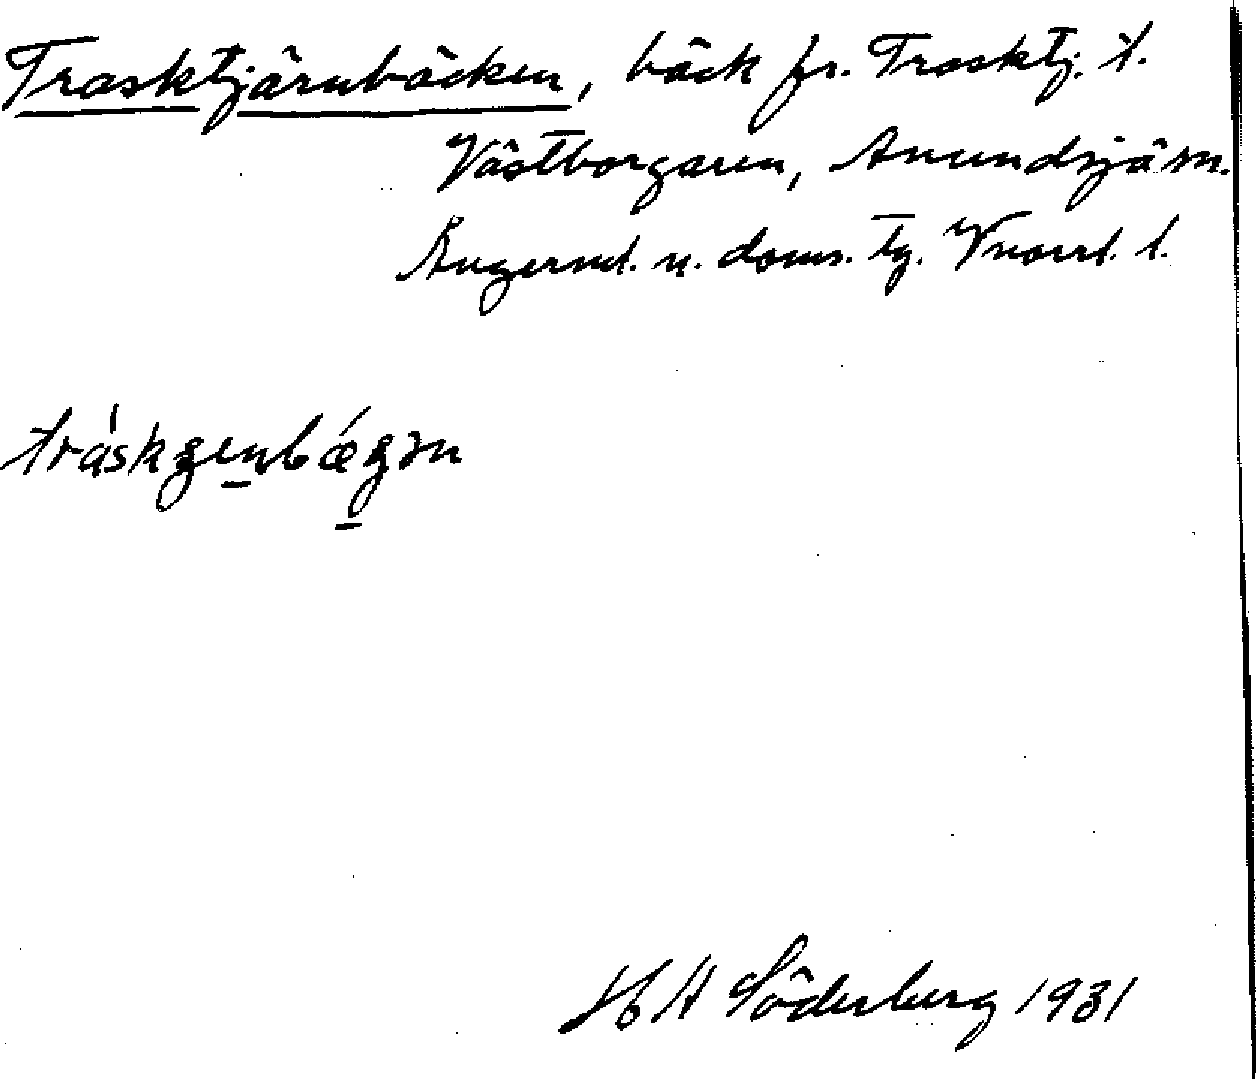 Trasktjärnbäcken, bäck fr. Trasktj. t.
Västborgaren, Anundsjö sn.
Ångerml. n. doms. tg. Vnorrl. l.
tráskgenbǽgən
H A Söderberg 1931